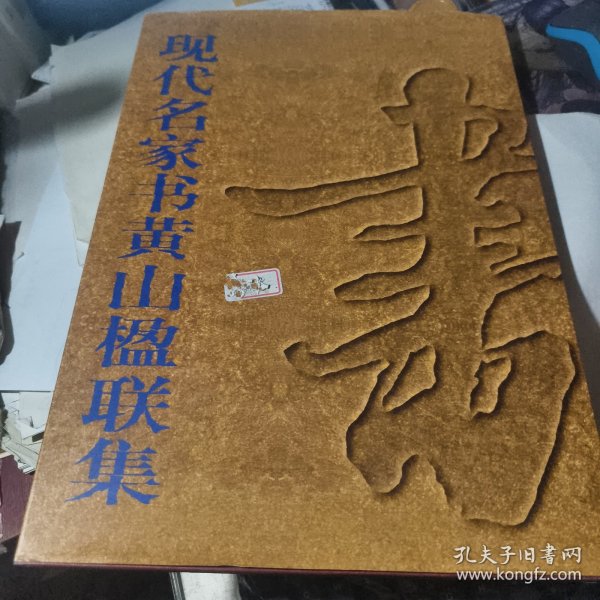 现代名家书黄山楹联集
書
孔夫子旧書网
www.kongfz.com